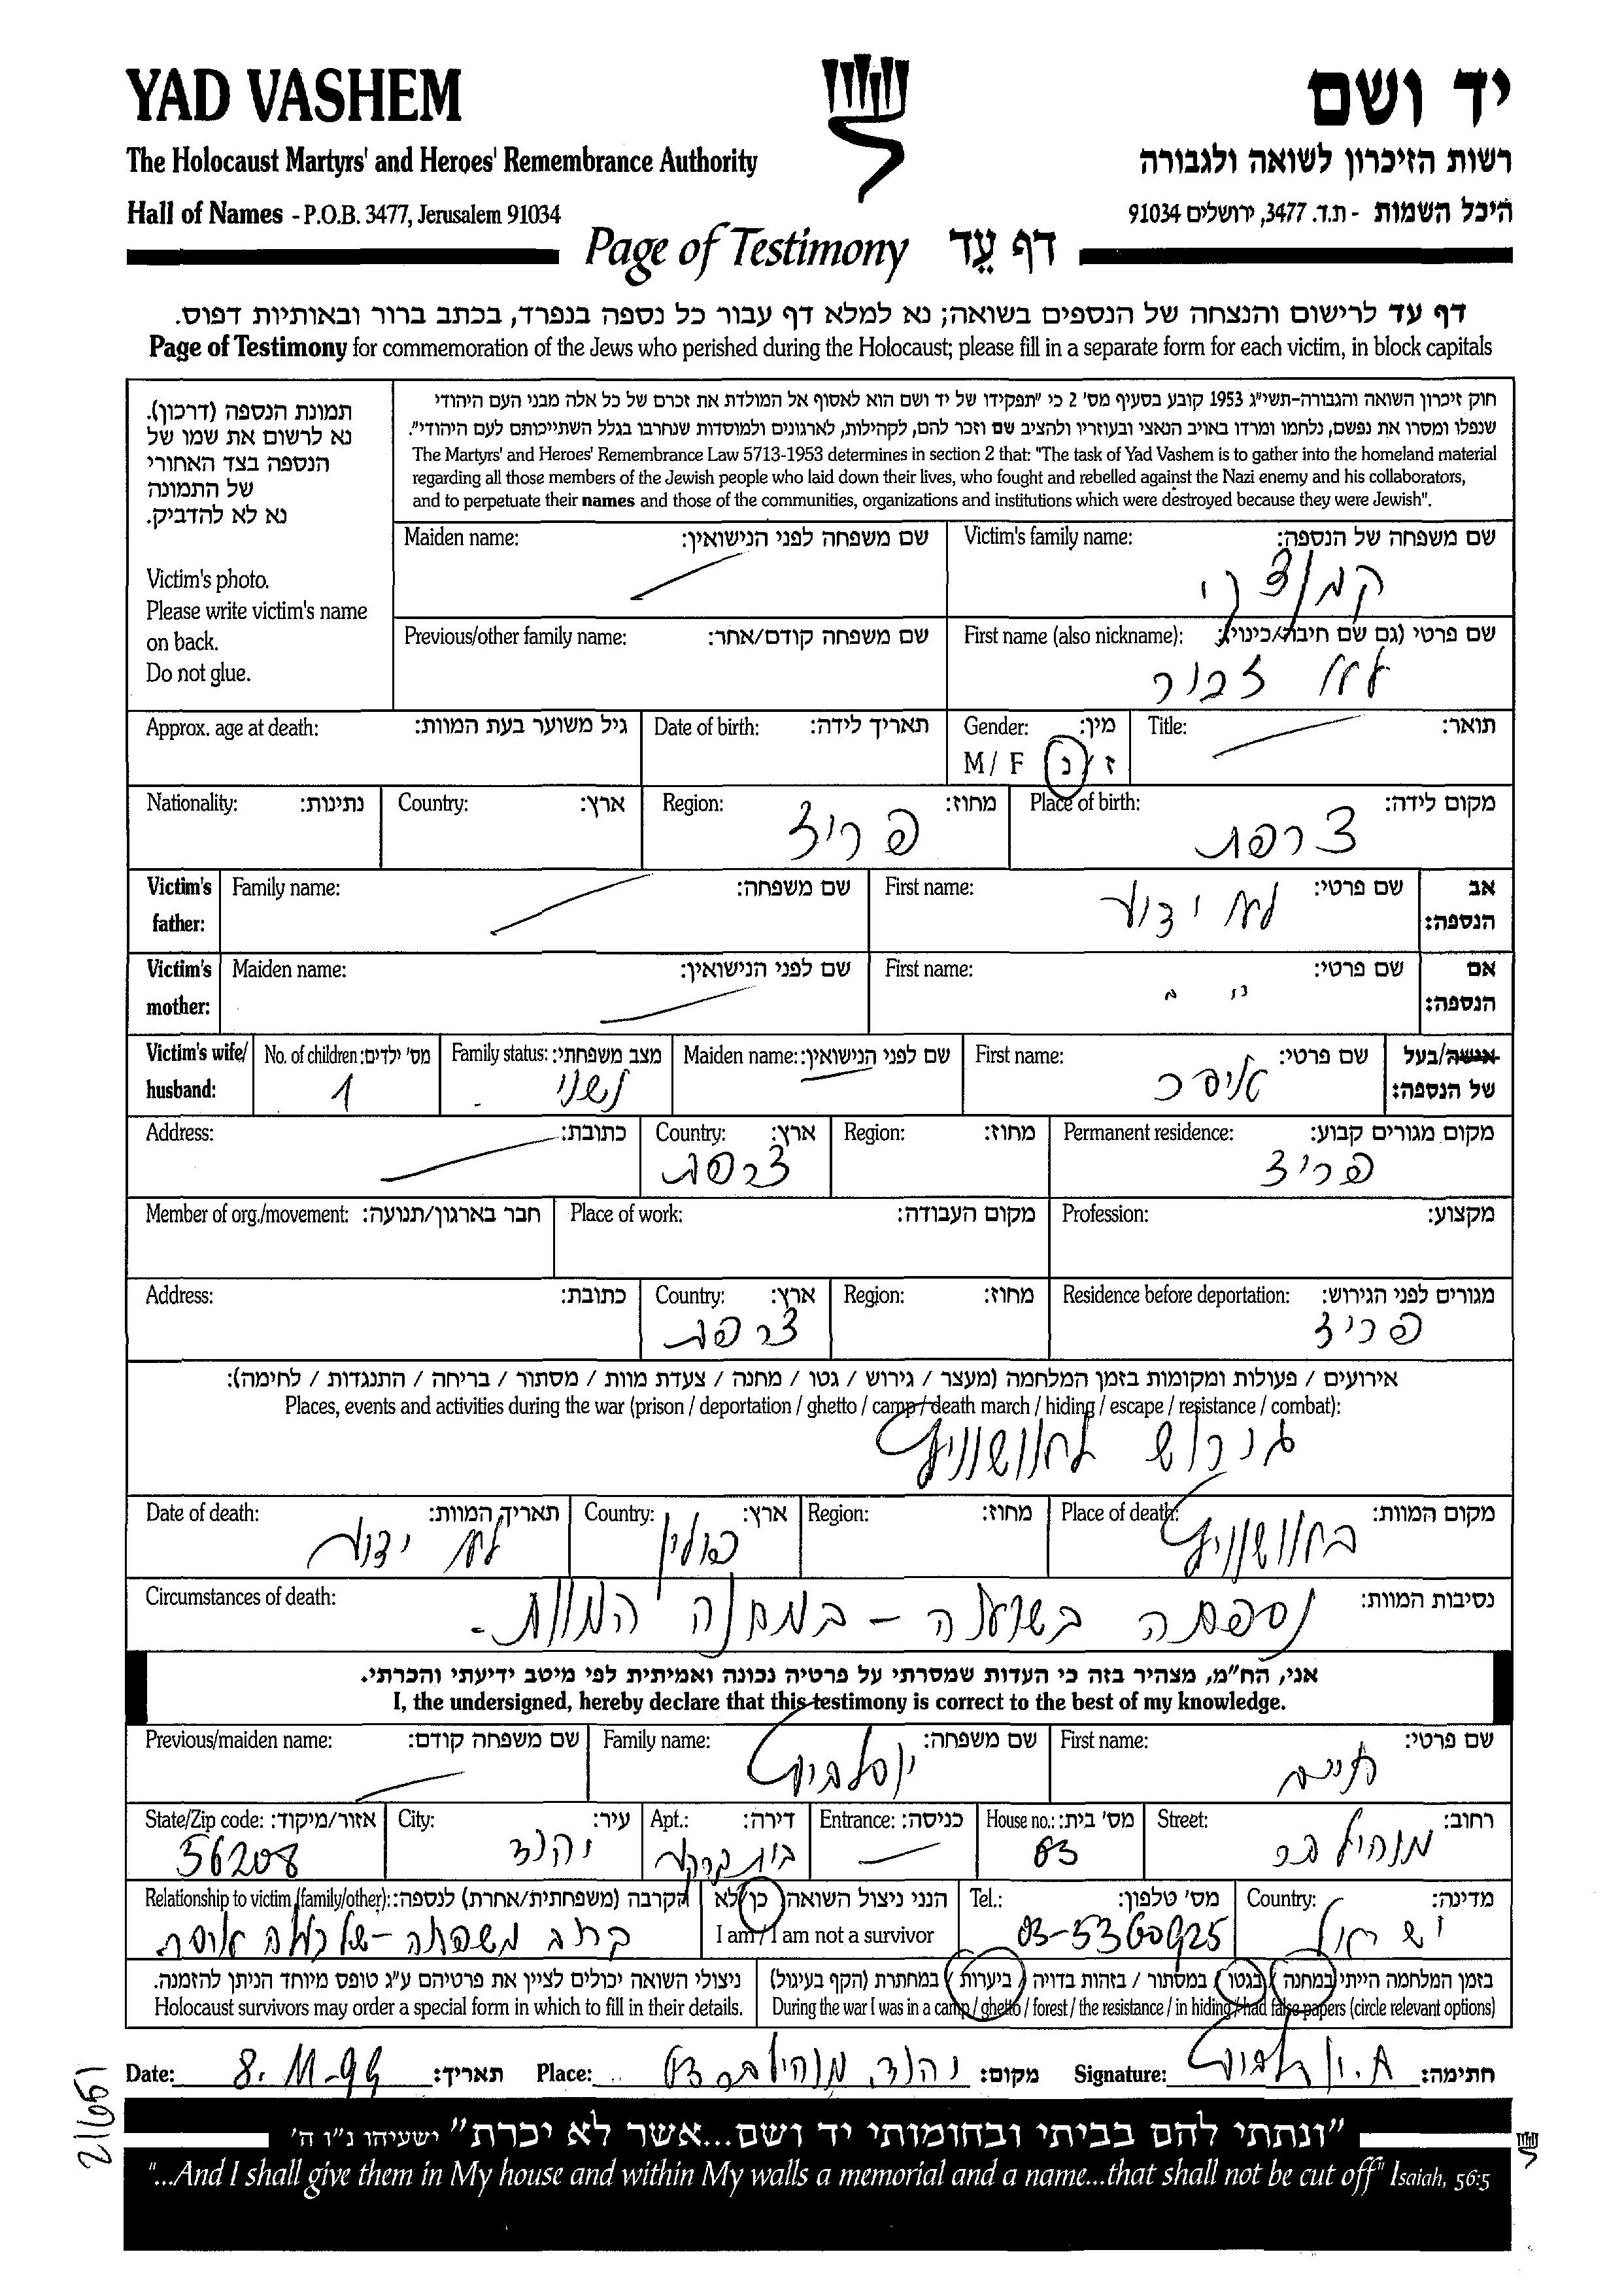 YAD VASHEM
יד ושם
The Holocaust Martyrs' and Heroes' Remembrance Authority
רשות הזיכרון לשואה ולגבורה
Hall of Names - P.O.B. 3477, Jerusalem 91034
היכל השמות - ת.ד. 3477, ירושלים 91034
Page of Testimony דף עֵד
דף עד לרישום והנצחה של הנספים בשואה; נא למלא דף עבור כל נספה בנפרד, בכתב ברור ובאותיות דפוס.
Page of Testimony for commemoration of the Jews who perished during the Holocaust; please fill in a separate form for each victim, in block capitals
תמונת הנספה (דרכון).
נא לרשום את שמו של
הנספה בצד האחורי
של התמונה
נא לא להדביק.
Victim's photo.
Please write victim's name
on back.
Do not glue.
חוק זיכרון השואה והגבורה-תשי"ג 1953 קובע בסעיף מס' 2 כי "תפקידו של יד ושם הוא לאסוף אל המולדת את זכרם של כל אלה מבני העם היהודי
שנפלו ומסרו את נפשם, נלחמו ומרדו באויב הנאצי ובעוזריו ולהציב שם וזכר להם, לקהילות, לארגונים ולמוסדות שנחרבו בגלל השתייכותם לעם היהודי".
The Martyrs' and Heroes' Remembrance Law 5713-1953 determines in section 2 that: "The task of Yad Vashem is to gather into the homeland material
regarding all those members of the Jewish people who laid down their lives, who fought and rebelled against the Nazi enemy and his collaborators,
and to perpetuate their names and those of the communities, organizations and institutions which were destroyed because they were Jewish".
Maiden name: שם משפחה לפני הנישואין:
Victim's family name: שם משפחה של הנספה:
Previous/other family name: שם משפחה קודם/אחר:
First name (also nickname): שם פרטי (גם שם חיבה/כינוי):
לא זכור
Approx. age at death: גיל משוער בעת המוות:
Date of birth: תאריך לידה:
Gender: מין:
M / F ז / נ
Title: תואר:
Nationality: נתינות:
Country: ארץ:
Region: מחוז:
פריז
Place of birth: מקום לידה:
צרפת
Victim's father: Family name: שם משפחה:
First name: שם פרטי: אב הנספה:
לא ידוע
Victim's mother: Maiden name: שם לפני הנישואין:
First name: שם פרטי: אם הנספה:
" "
Victim's wife/ husband: No. of children: מס' ילדים:
1
Family status: מצב משפחתי:
נשוי
Maiden name: שם לפני הנישואין:
First name: שם פרטי: אישה/בעל של הנספה:
Address: כתובת:
Country: ארץ:
צרפת
Region: מחוז:
Permanent residence: מקום מגורים קבוע:
פריז
Member of org./movement: חבר בארגון/תנועה:
Place of work: מקום העבודה:
Profession: מקצוע:
Address: כתובת:
Country: ארץ:
צרפת
Region: מחוז:
Residence before deportation: מגורים לפני הגירוש:
פריז
אירועים / פעולות ומקומות בזמן המלחמה (מעצר / גירוש / גטו / מחנה / צעדת מוות / מסתור / בריחה / התנגדות / לחימה):
Places, events and activities during the war (prison / deportation / ghetto / camp / death march / hiding / escape / resistance / combat):
גירוש לאושוויץ
Date of death: תאריך המוות:
לא ידוע
Country: ארץ:
פולין
Region: מחוז:
Place of death: מקום המוות:
באושוויץ
Circumstances of death: נסיבות המוות:
נספתה בשואה - במחנה המוות.
אני, הח"מ, מצהיר בזה כי העדות שמסרתי על פרטיה נכונה ואמיתית לפי מיטב ידיעתי והכרתי.
I, the undersigned, hereby declare that this testimony is correct to the best of my knowledge.
Previous/maiden name: שם משפחה קודם:
Family name: שם משפחה:
First name: שם פרטי:
חיים
State/Zip code: אזור/מיקוד:
56208
City: עיר:
יהוד
Apt.: דירה:
Entrance: כניסה:
House no.: מס' בית:
83
Street: רחוב:
Relationship to victim (family/other): הקרבה (משפחתית/אחרת) לנספה:
הנני ניצול השואה כן / לא
I am / I am not a survivor
Tel.: מס' טלפון:
03-5360925
Country: מדינה:
ישראל
ניצולי השואה יכולים לציין את פרטיהם ע"ג טופס מיוחד הניתן להזמנה.
Holocaust survivors may order a special form in which to fill in their details.
בזמן המלחמה הייתי במחנה / בגטו / במסתור / בזהות בדויה / ביערות / במחתרת (הקף בעיגול)
During the war I was in a camp / ghetto / forest / the resistance / in hiding / had false papers (circle relevant options)
Date: 8.11-99 תאריך:
Place: יהוד מקום:
Signature: חתימה:
"ונתתי להם בביתי ובחומותי יד ושם...אשר לא יכרת" ישעיהו נ"ו ה'
"...And I shall give them in My house and within My walls a memorial and a name...that shall not be cut off" Isaiah, 56:5